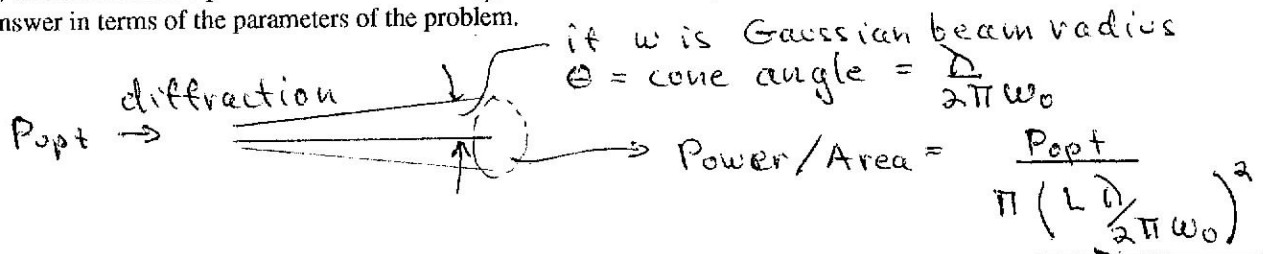 nswer in terms of the parameters of the problem.
if w is Gaussian beam radius
θ = cone angle = λ / 2π w₀
diffraction
Popt →
Power/Area = Popt / π (L λ/2π w₀)²